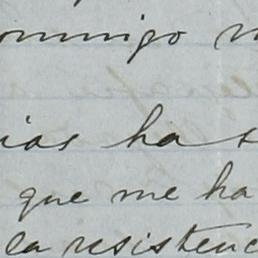 omingo
ias ha
que me ha
la resistenc